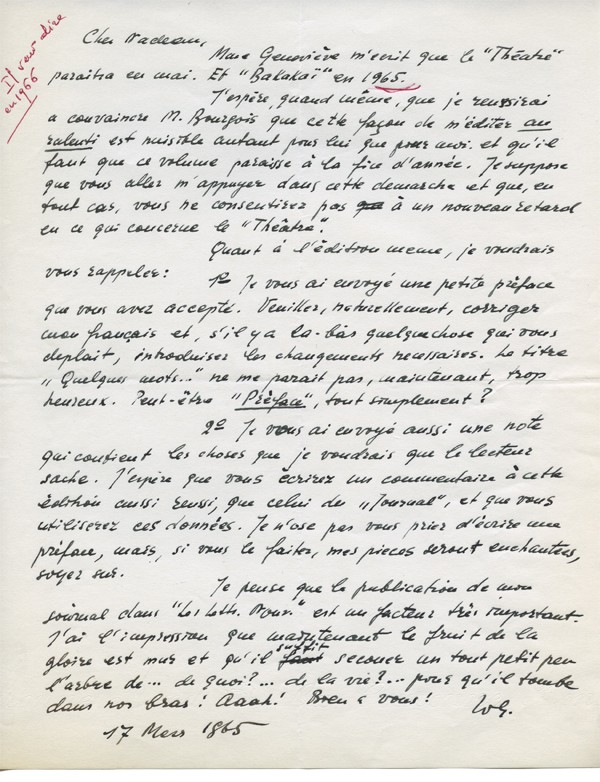 Il veut dire
en 1966
Cher Nadeau,
Mme Geneviève m'ecrit que le "Théatre"
paraitra en mai. Et "Balakaï" en 1965.
J'espère, quand même, que je reussirai
a convaincre M. Bourgois que cette façon de m'éditer au
ralenti est nuisible autant pour lui que pour moi et qu'il
faut que ce volume paraisse à la fin d'année. Je suppose
que vous allez m'appuyer dans cette demarche et que, en
tout cas, vous ne consentirez pas à un nouveau retard
en ce qui concerne le "Théâtre".
Quant à l'édition meme, je voudrais
vous rappeler:
1º Je vous ai envoyé une petite préface
que vous avez accepté. Veuillez, naturellement, corriger
mon français et, s'il y a la-bàs quelque chose qui vous
deplait, introduisez les changements necessaires. Le titre
"Quelques mots..." ne me parait pas, maintenant, trop
heureux. Peut-être "Préface", tout simplement?
2º Je vous ai envoyé aussi une note
qui contient les choses que je voudrais que le lecteur
sache. J'espère que vous écrirez un commentaire à cette
édition aussi reussi, que celui du "Journal", et que vous
utiliserez ces données. Je n'ose pas vous prier d'écrire une
préface, mais, si vous le faites, mes pieces seront enchantées,
soyez sur.
Je pense que la publication de mon
journal dans "Les Lett. Nouv." est un facteur très important.
J'ai l'impression que maintenant le fruit de la
gloire est mur et qu'il suffit secouer un tout petit peu
l'arbre de... de quoi?... de la vie?... pour qu'il tombe
dans nos bras! Aaah! Bien a vous!
WG.
17 Mars 1965